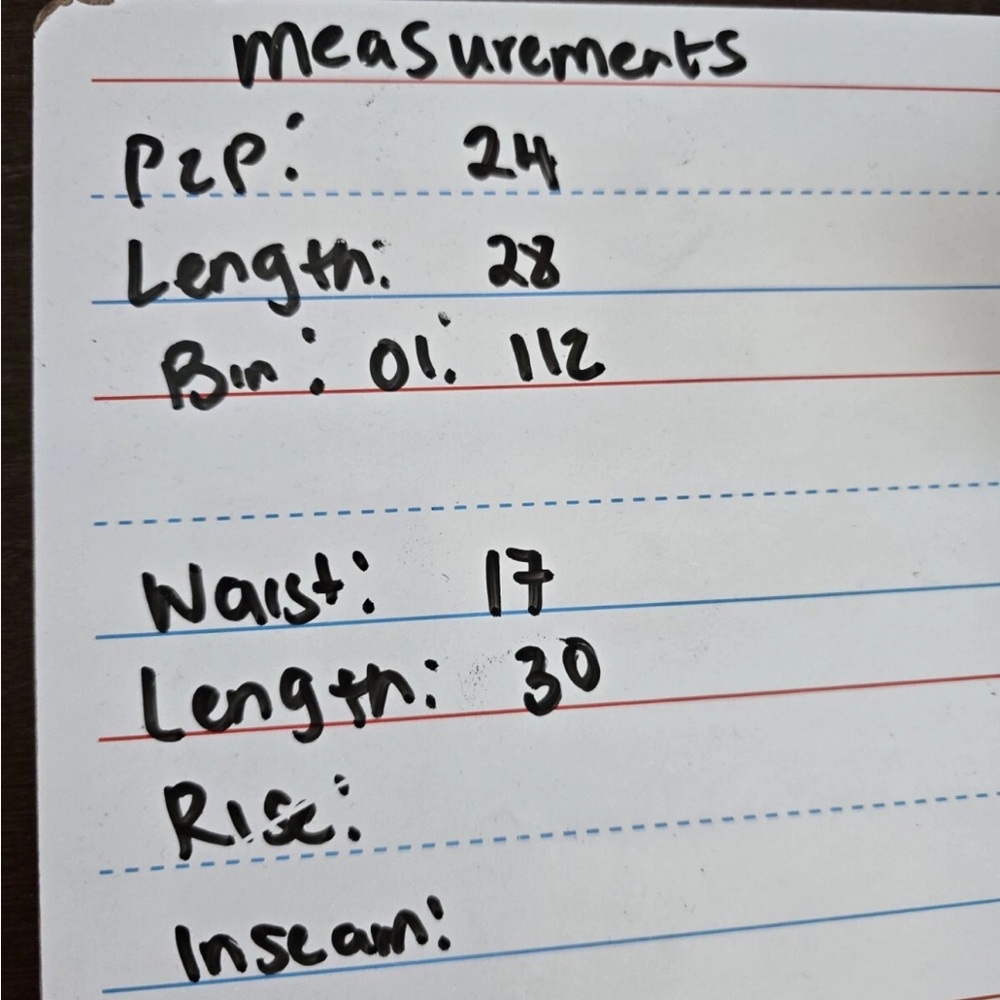 measurements
P2P: 24
Length: 28
Bin: 01: 112
Waist: 17
Length: 30
Rise:
Inseam: